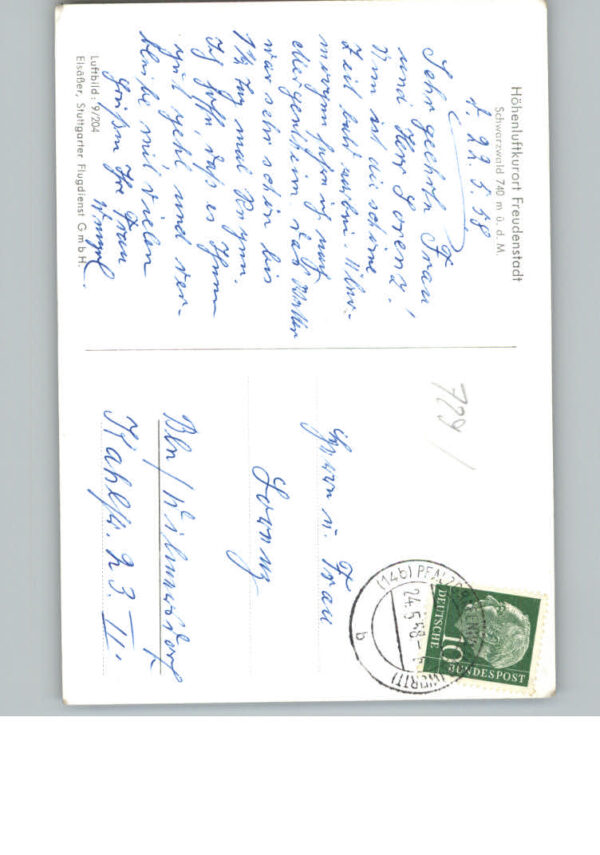 Höhenluftkurort Freudenstadt
Schwarzwald 740 m ü. d. M.
F. 22. 5. 58
Sehr geehrte Frau,
und Herr Lorenz!
Nun ist die schöne
Zeit bald vorbei.
morgen fahre ich nach
Mergentheim das Wetter
war sehr schön bis
1½ Tag mal Regen.
Ich hoffe, daß es Ihnen
gut geht und ver-
bleibe mit vielen
Grüßen Ihre Frau
Luftbild: 9/204
Elsäßer, Stuttgarter Flugdienst GmbH.
729/
Herrn u. Frau
Lorenz
Bln/Wilmersdorf
Kahlstr. 23. II.
(14b) PFALZGRAFENW
24.5.58
(WÜRTT)
b
10
DEUTSCHE
BUNDESPOST